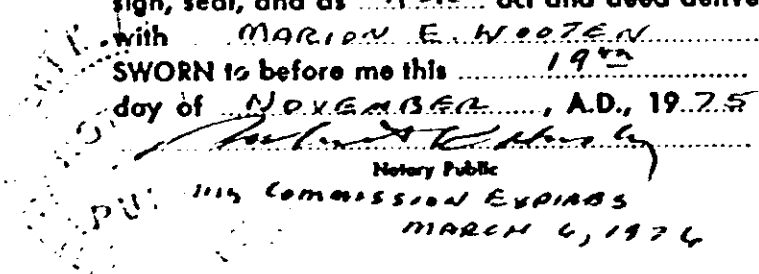 sign, seal, and as act and deed delive
with MARION E. WOOTEN
SWORN to before me this 19th
day of NOVEMBER, A.D., 1975
Notary Public
My Commission Expires
MARCH 6, 1976